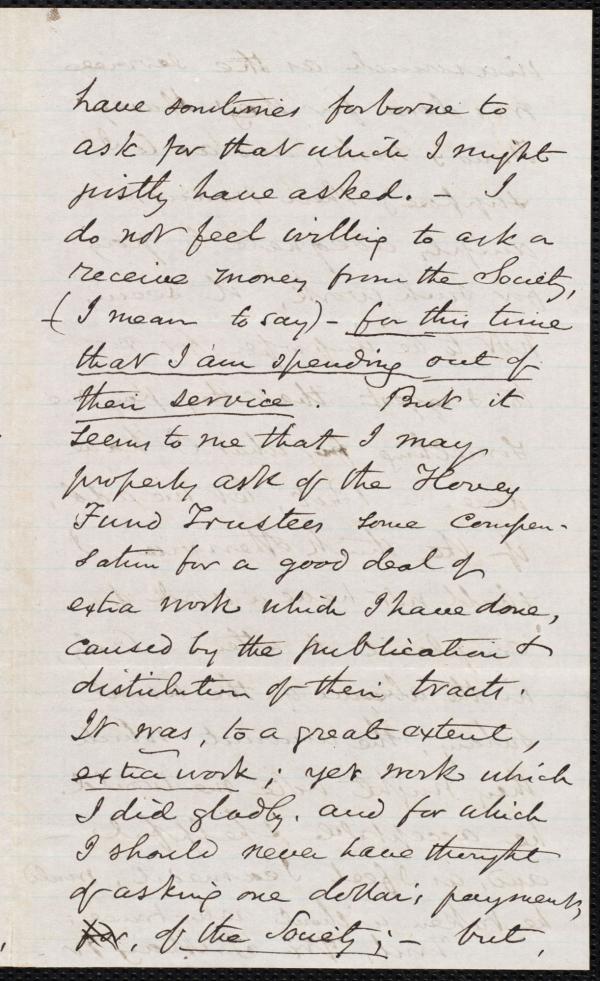 have sometimes forborne to
ask for that which I might
justly have asked. – I
do not feel willing to ask or
receive money from the Society,
(I mean to say) – for this time
that I am spending out of
their service. But it
seems to me that I may
properly ask of the Hovey
Fund Trustees some compen-
sation for a good deal of
extra work which I have done,
caused by the publication &
distribution of their tracts.
It was, to a great extent,
extra work; yet work which
I did gladly. and for which
I should never have thought
of asking one dollar's payment,
for, of the Society; – but,